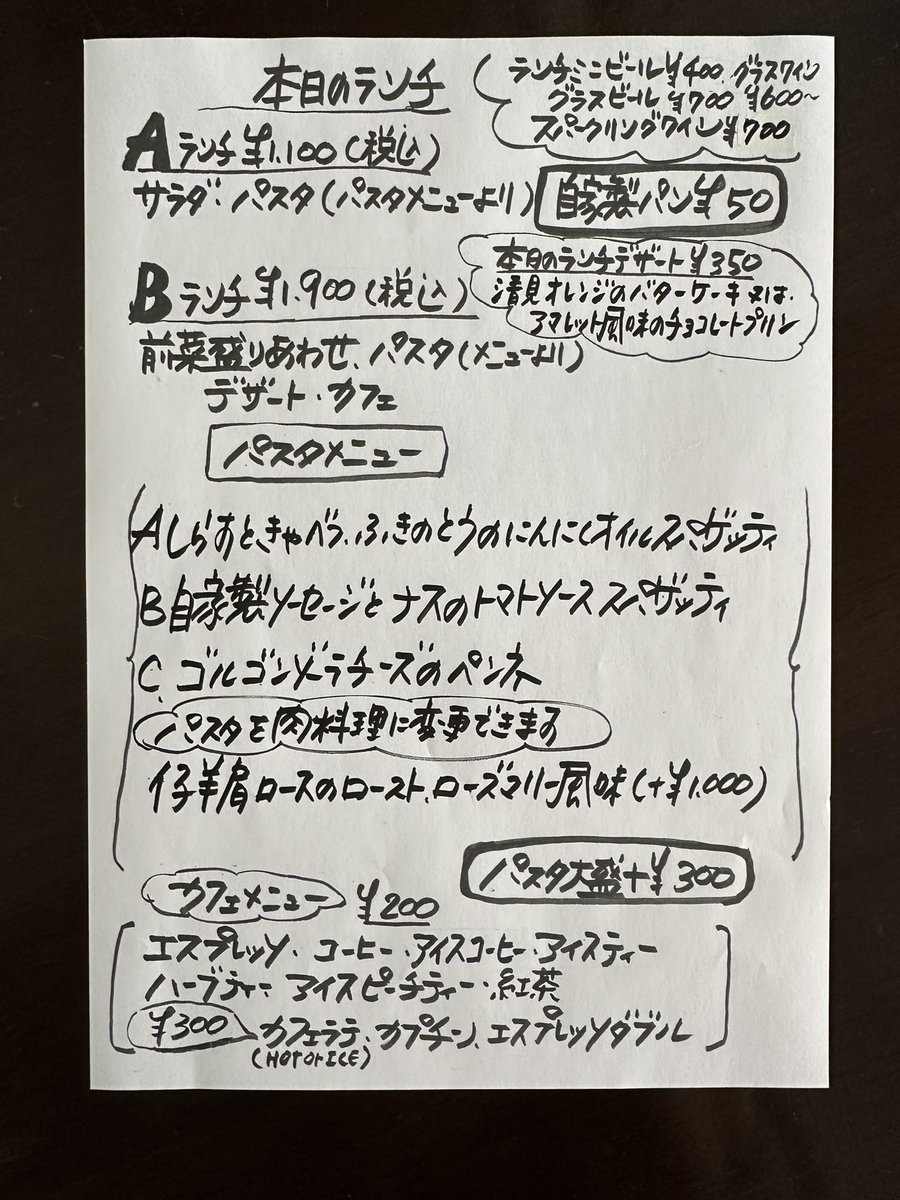 本日のランチ
ランチミニビール¥400 グラスワイン
グラスビール ¥700 ¥600〜
スパークリングワイン¥700
Aランチ¥1,100(税込)
サラダ・パスタ(パスタメニューより)
自家製パン¥50
本日のランチデザート¥350
清見オレンジのバターケーキ又は、
アマレット風味のチョコレートプリン
Bランチ¥1,900(税込)
前菜盛りあわせ、パスタ(メニューより)
デザート・カフェ
パスタメニュー
Aしらすと、きゃべつ、ふきのとうのにんにくオイルスパゲッティ
B自家製ソーセージとナスのトマトソーススパゲッティ
C、ゴルゴンゾーラチーズのペンネ
パスタを肉料理に変更できます
仔羊肩ロースのロースト、ローズマリー風味(+¥1,000)
パスタ大盛+¥300
カフェメニュー ¥200
エスプレッソ・コーヒー・アイスコーヒー・アイスティー
ハーブティー アイスピーチティー・紅茶
¥300 カフェラテ、カプチーノ、エスプレッソダブル
(HOT or ICE)